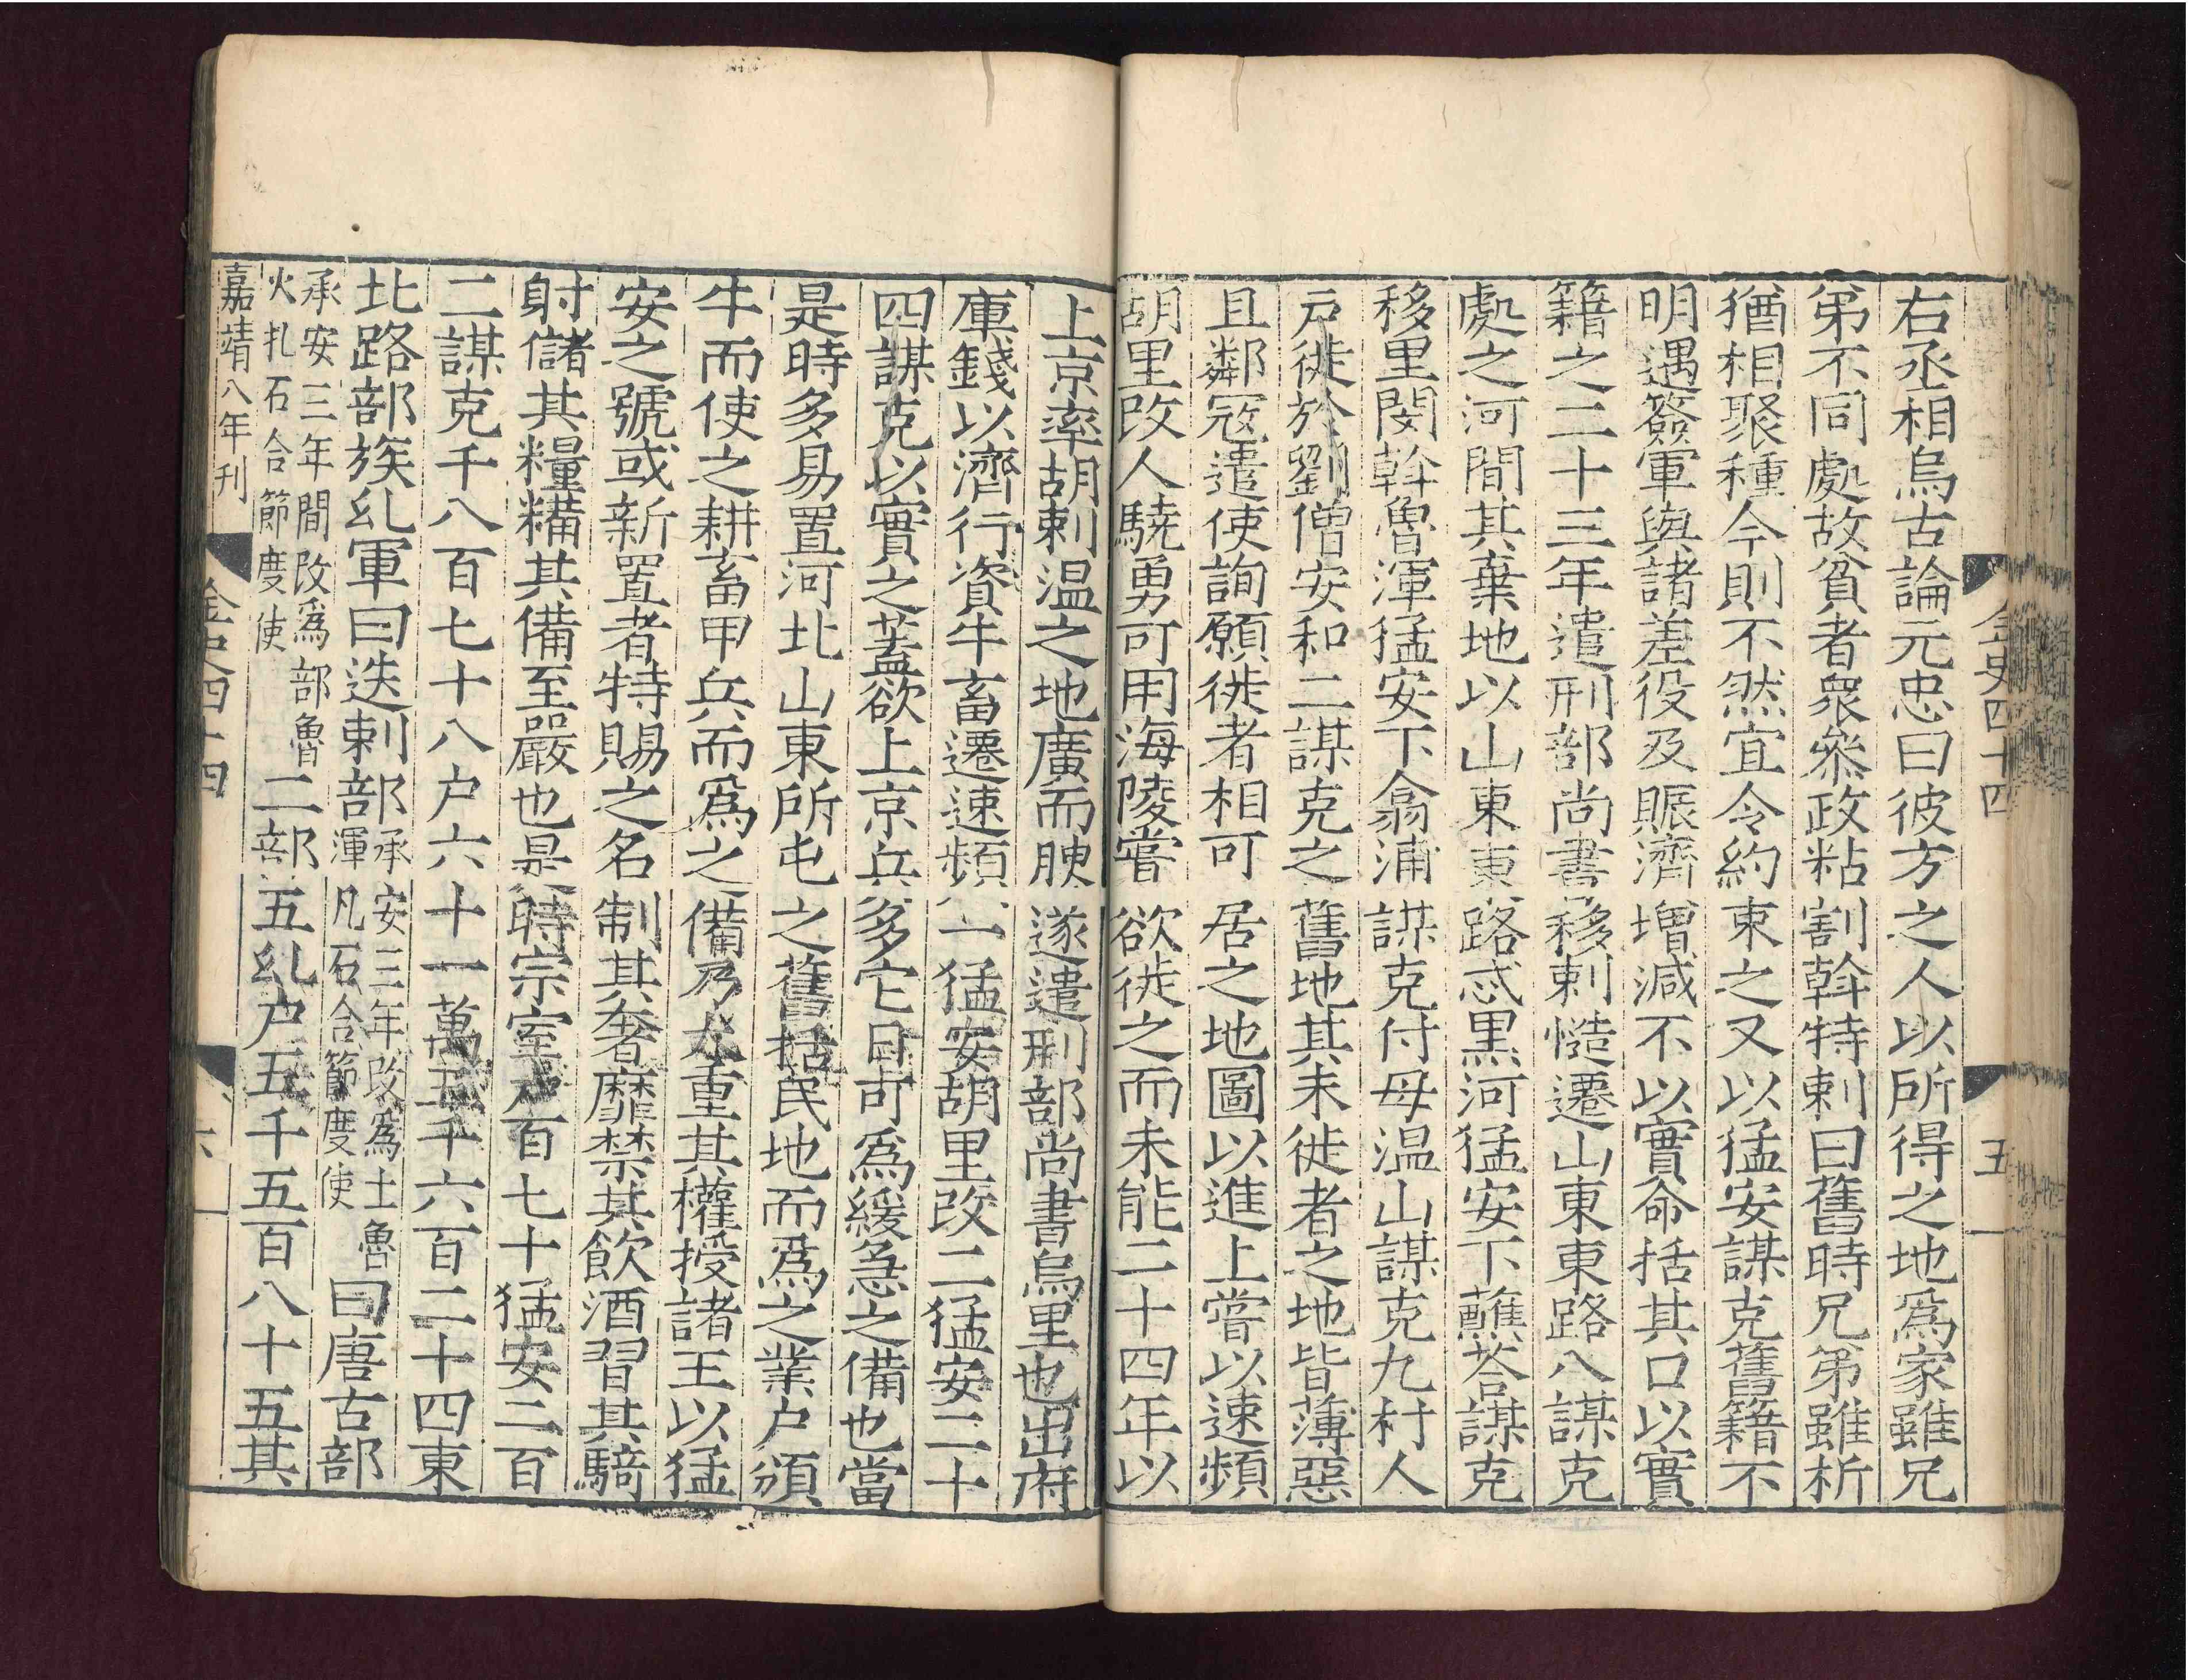 金史四十四
五
右丞相烏古論元忠曰彼方之人以所得之地爲家雖兄
弟不同處故貧者衆參政粘割斡特剌曰舊時兄弟雖析
猶相聚種今則不然宜令約束之又以猛安謀克舊籍不
明遇簽軍與諸差役及賑濟增減不以實命括其口以實
籍之二十三年遣刑部尚書移剌慥遷山東東路八謀克
處之河間其棄地以山東東路忒黑河猛安下蘸荅謀克
移里閔斡魯渾猛安下翕浦謀克付母温山謀克九村人
戸徙於劉僧安和二謀克之舊地其未徙者之地皆薄惡
且鄰冦遣使詢願徙者相可居之地圖以進上嘗以速頻
胡里改人驍勇可用海陵嘗欲徙之而未能二十四年以
上京率胡剌温之地廣而腴遂遣刑部尚書烏里也出府
庫錢以濟行資牛畜遷速頻一猛安胡里改二猛安二十
四謀克以實之葢欲上京兵多它日可爲緩急之備也當
是時多易置河北山東所屯之舊括民地而爲之業户頒
牛而使之耕畜甲兵而爲之備乃大重其權授諸王以猛
安之號或新置者特賜之名制其奢靡禁其飲酒習其騎
射儲其糧糒其備至嚴也是時宗室户百七十猛安二百
二謀克千八百七十八户六十一萬五千六百二十四東
北路部族乣軍曰迭剌部承安三年改爲土魯渾凡石合節度使曰唐古部
承安三年間改爲部魯火扎石合節度使二部五乣户五千五百八十五其
嘉靖八年刊
金史四十四
六